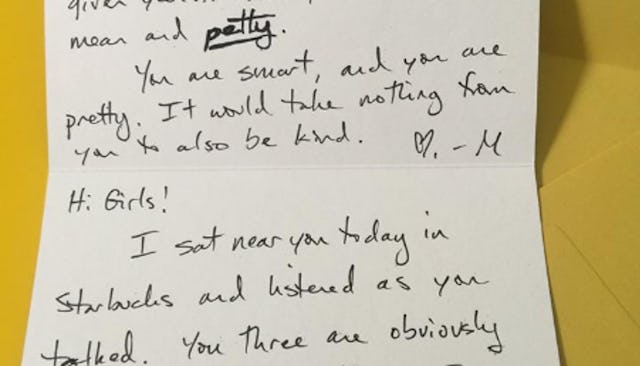 given
mean and petty.
You are smart, and you are
pretty. It would take nothing from
you to also be kind. ♡. - M
Hi Girls!
I sat near you today in
Starbucks and listened as you
talked. You three are obviously